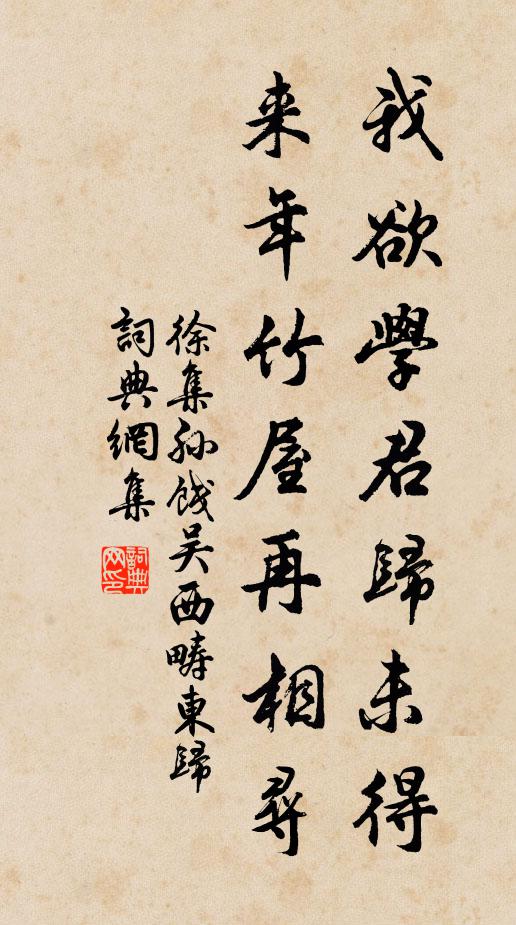 我欲學君歸未得
来年竹屋再相尋
徐集孙餞吴西疇東歸
詞典網集
詞典网印